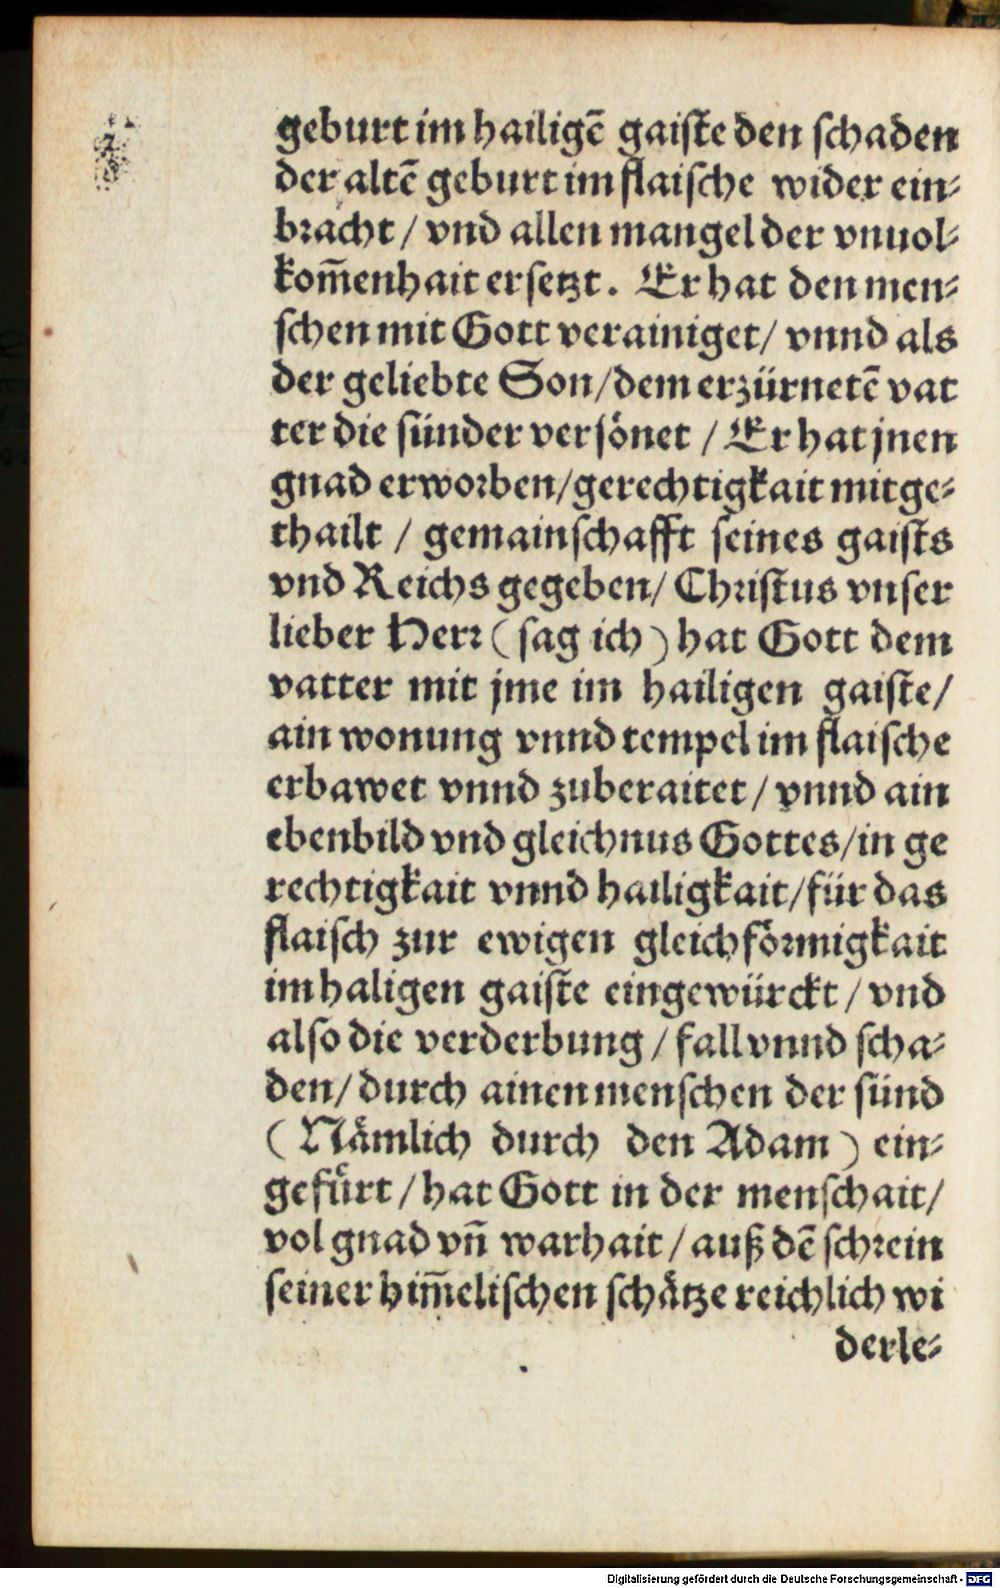 geburt im hailigē gaiſte den ſchaden
der altē geburt im flaiſche wider ein⸗
bracht / vnd allen mangel der vnuol⸗
kom̄enhait erſetzt. Er hat den men⸗
ſchen mit Gott verainiget / vnnd als
der geliebte Son / dem erzürnetē vat
ter die ſünder verſönet / Er hat jnen
gnad erworben / gerechtigkait mitge⸗
thailt / gemainſchafft ſeines gaiſts
vnd Reichs gegeben / Chriſtus vnſer
lieber Herr ( ſag ich ) hat Gott dem
vatter mit jme im hailigen gaiſte /
ain wonung vnnd tempel im flaiſche
erbawet vnnd zuberaitet / vnnd ain
ebenbild vnd gleichnus Gottes / in ge
rechtigkait vnnd hailigkait / für das
flaiſch zur ewigen gleichförmigkait
im haligen gaiſte eingewürckt / vnd
alſo die verderbung / fall vnnd ſcha⸗
den / durch ainen menſchen der ſünd
( Nämlich durch den Adam ) ein⸗
gefürt / hat Gott in der menſchait /
vol gnad vn̄ warhait / auß dē ſchrein
ſeiner him̄eliſchen ſchätze reichlich wi
derle⸗
Digitalisierung gefördert durch die Deutsche Forschungsgemeinschaft - DFG